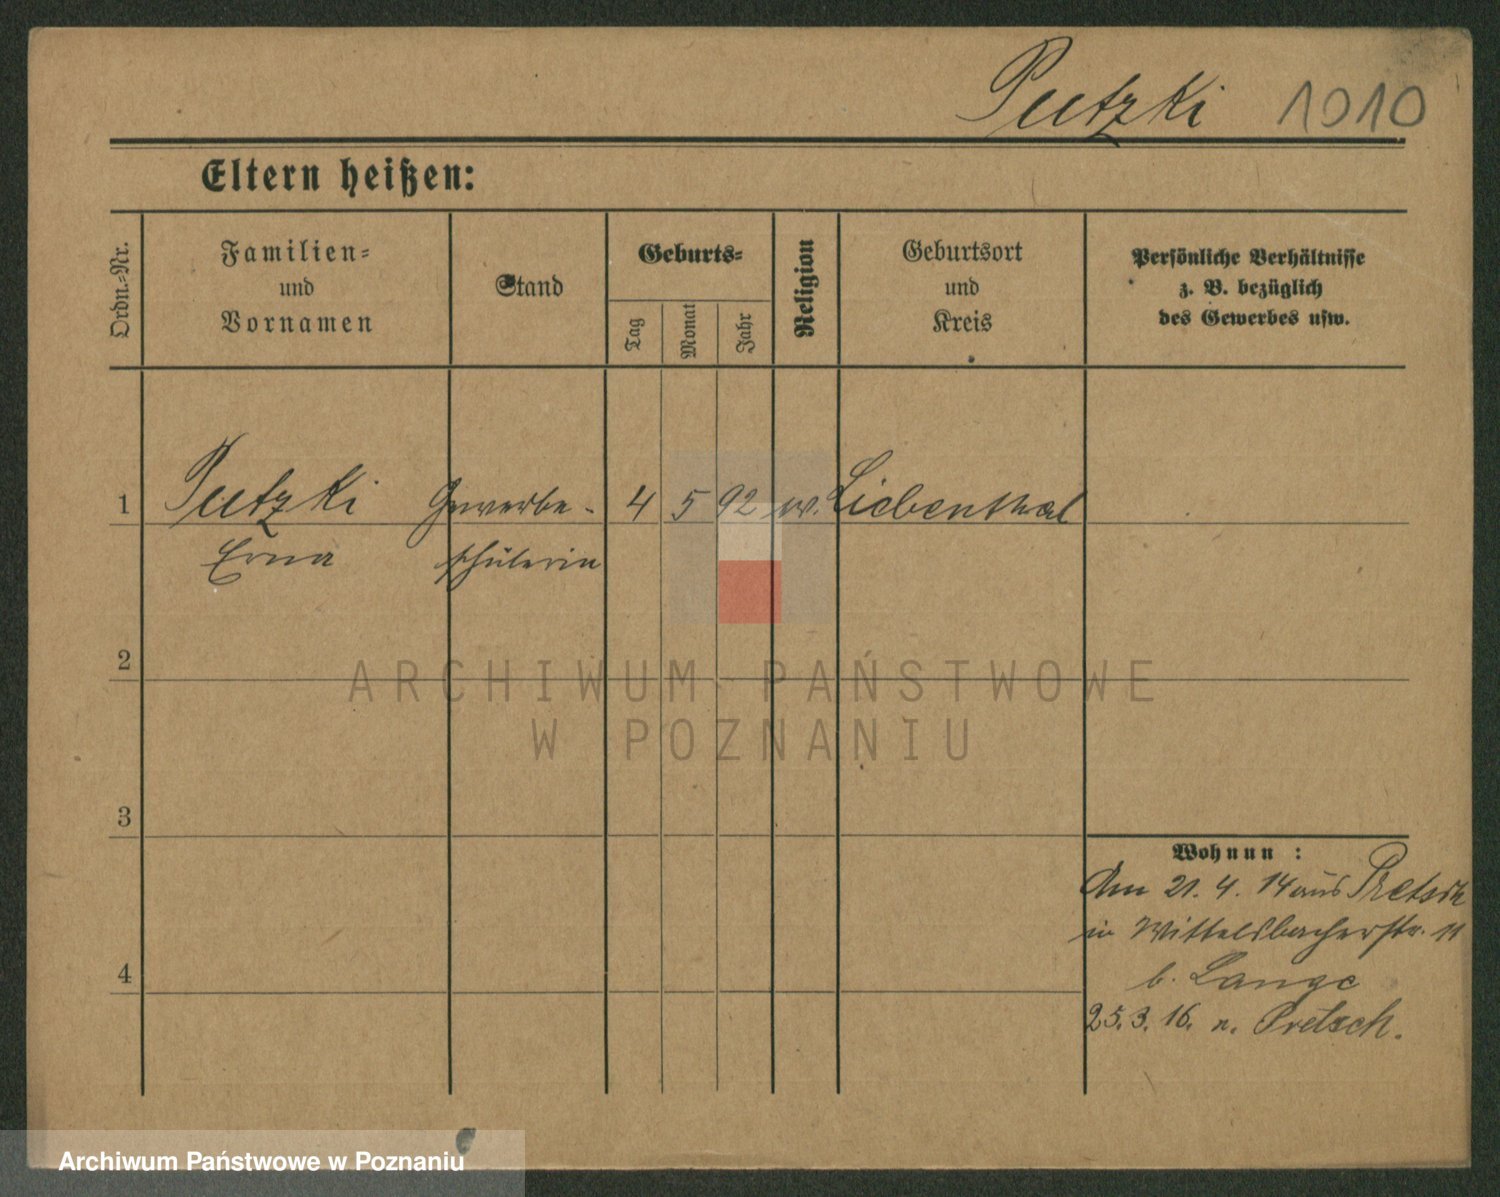 Putzki 1010
Eltern heißen:
Ordn.-Nr.
Familien-
und
Vornamen
Stand
Geburts-
Tag
Monat
Jahr
Religion
Geburtsort
und
Kreis
Persönliche Verhältnisse
z. B. bezüglich
des Gewerbes usw.
1 Putzki Gewerbe- 4 5 92 ev. Liebenthal
Erna schülerin
2
3
4
Wohnun :
Am 21. 4. 14 aus Pretsch
in Wittelsbacherstr. 11
b. Lange
25. 3. 16. n. Pretsch.
ARCHIWUM PAŃSTWOWE
W POZNANIU
Archiwum Państwowe w Poznaniu